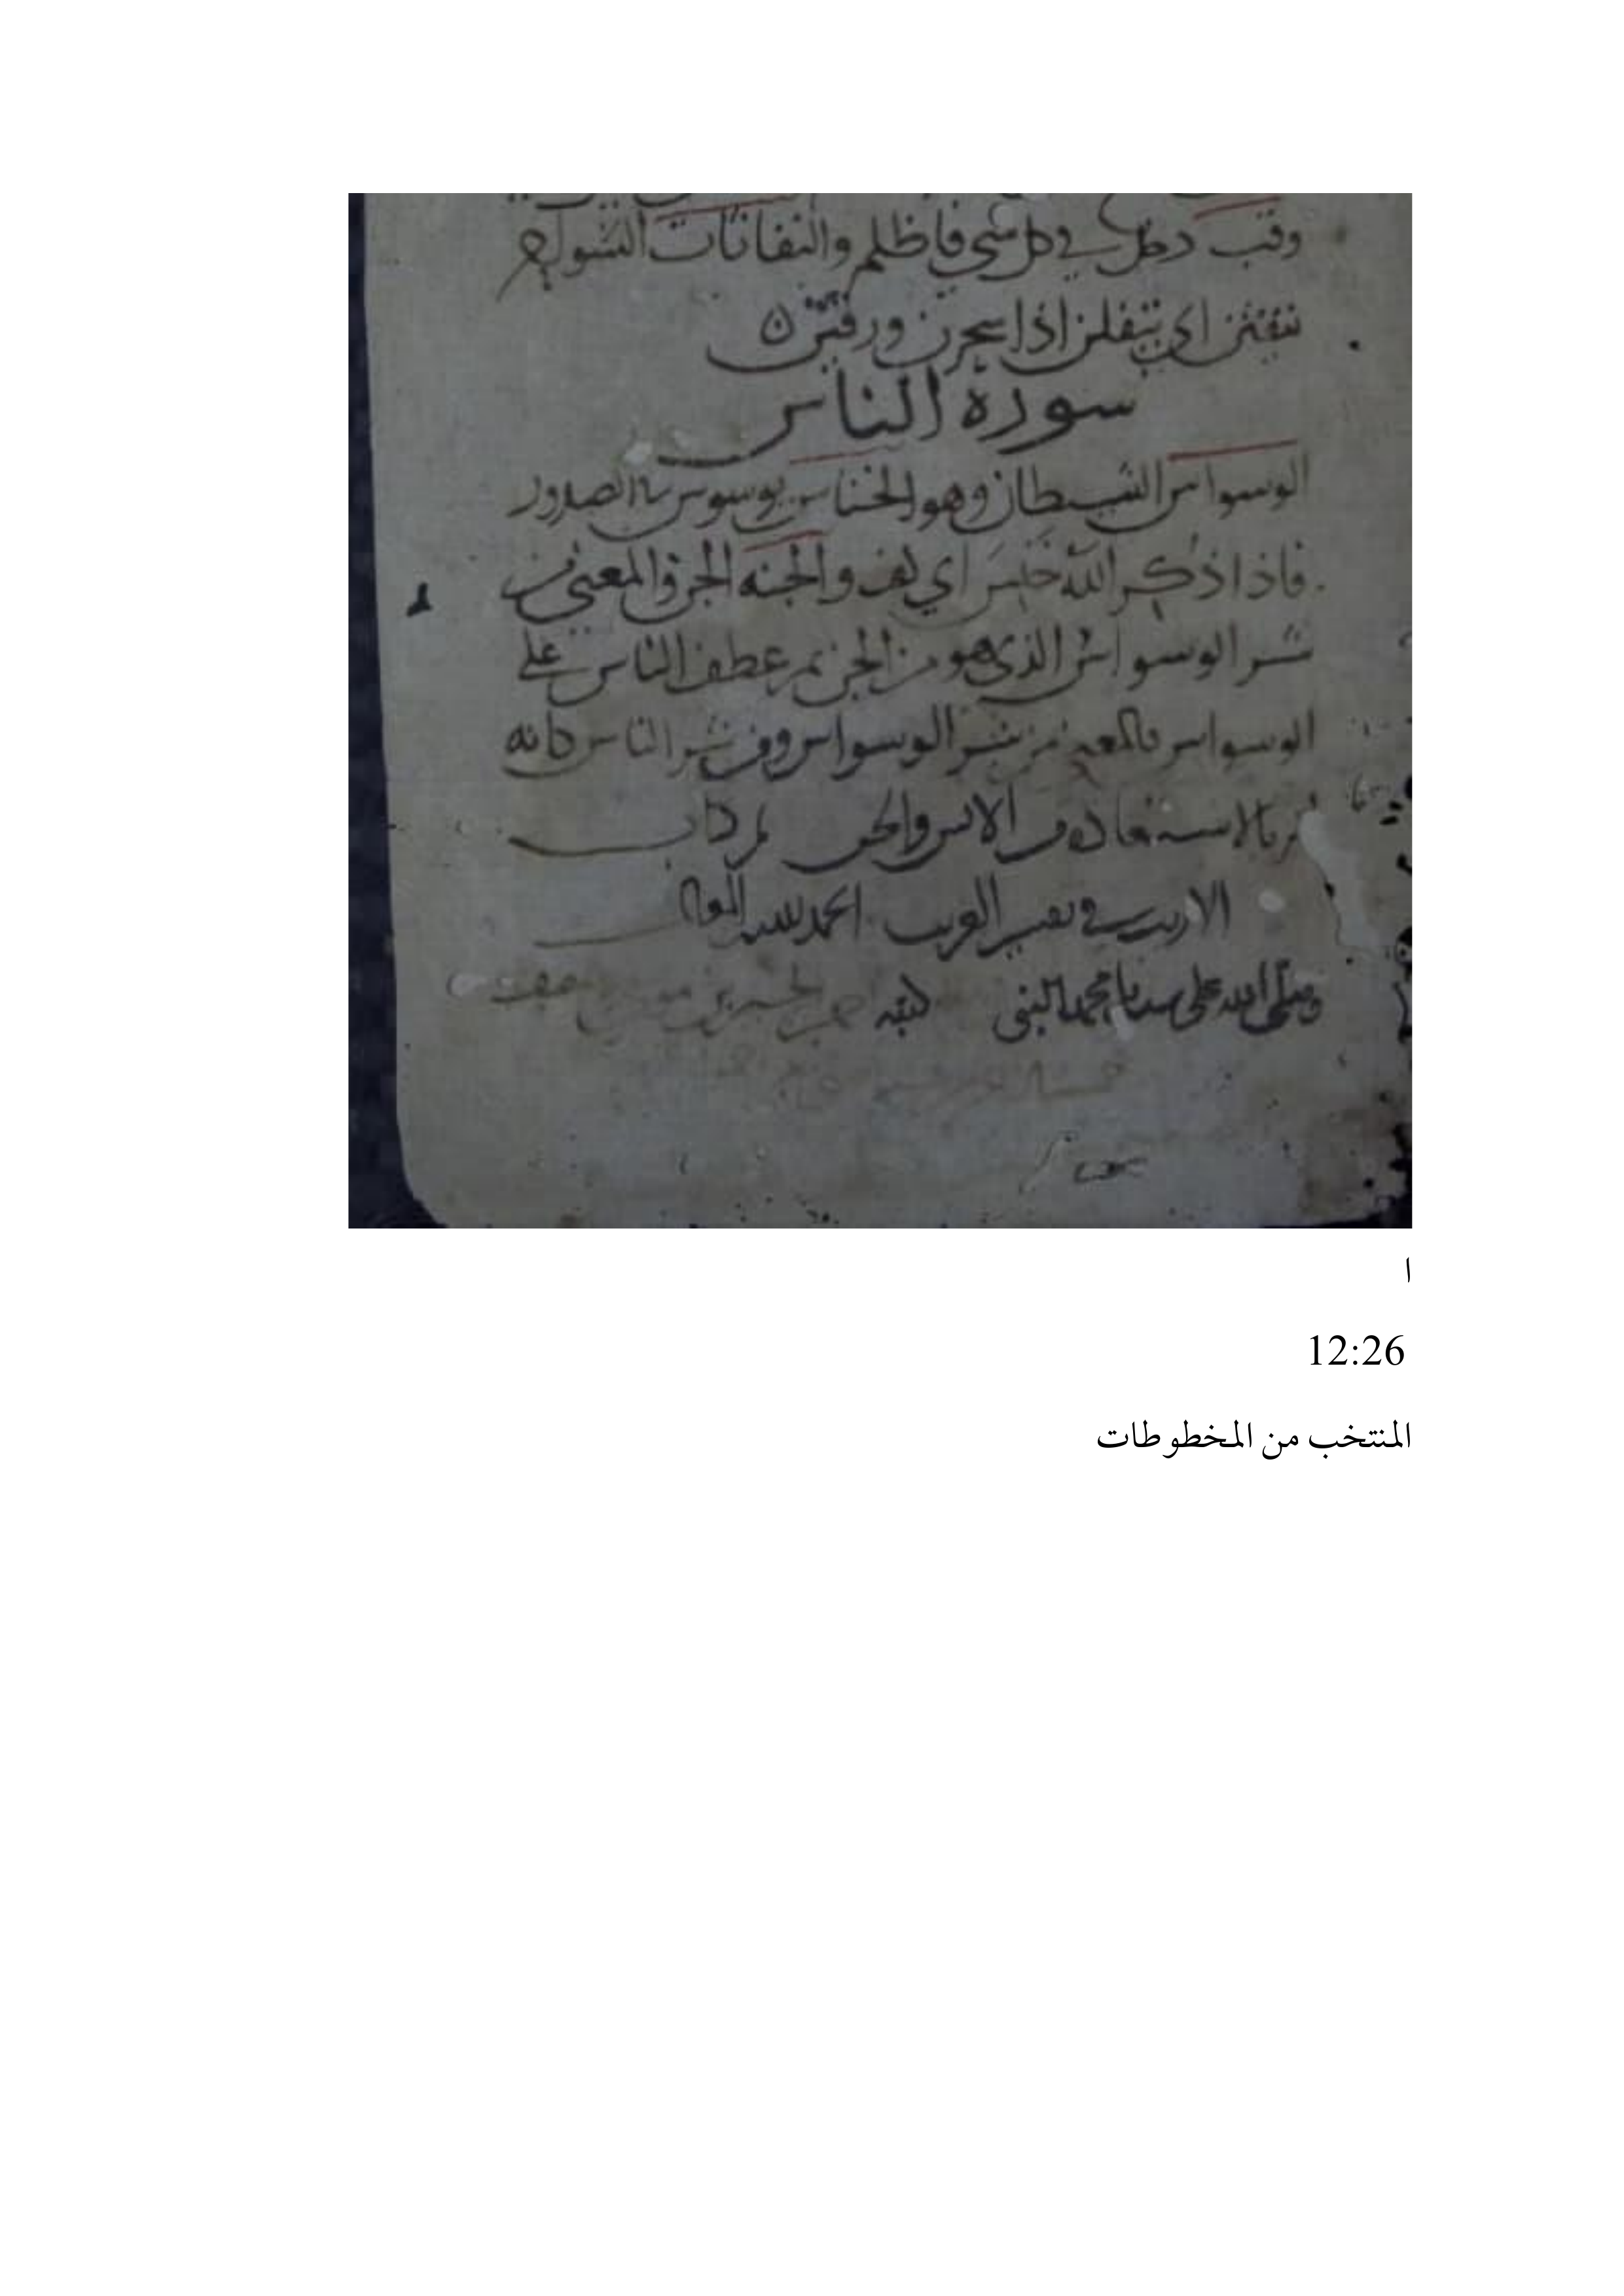 وقب دخل في كل شي فاظلم والنفاثات السواحر
ينفثن اي يتفلن اذا سحرن ورقين
سورة الناس
الوسواس الشيطان وهو الخناس يوسوس في الصدور
فاذا ذكر الله خنس اي كف والجنه الجن والمعنى من
شر الوسواس الذي هو من الجن ثم عطف الناس على
الوسواس فالمعنى من شر الوسواس ومن شر الناس كانه
امر بالاستعاذه من الانس والجن تم كتاب
الاريب في تفسير الغريب الحمد لله
وصلى الله على سيدنا محمد النبي كتبه
ا
12:26
المنتخب من المخطوطات